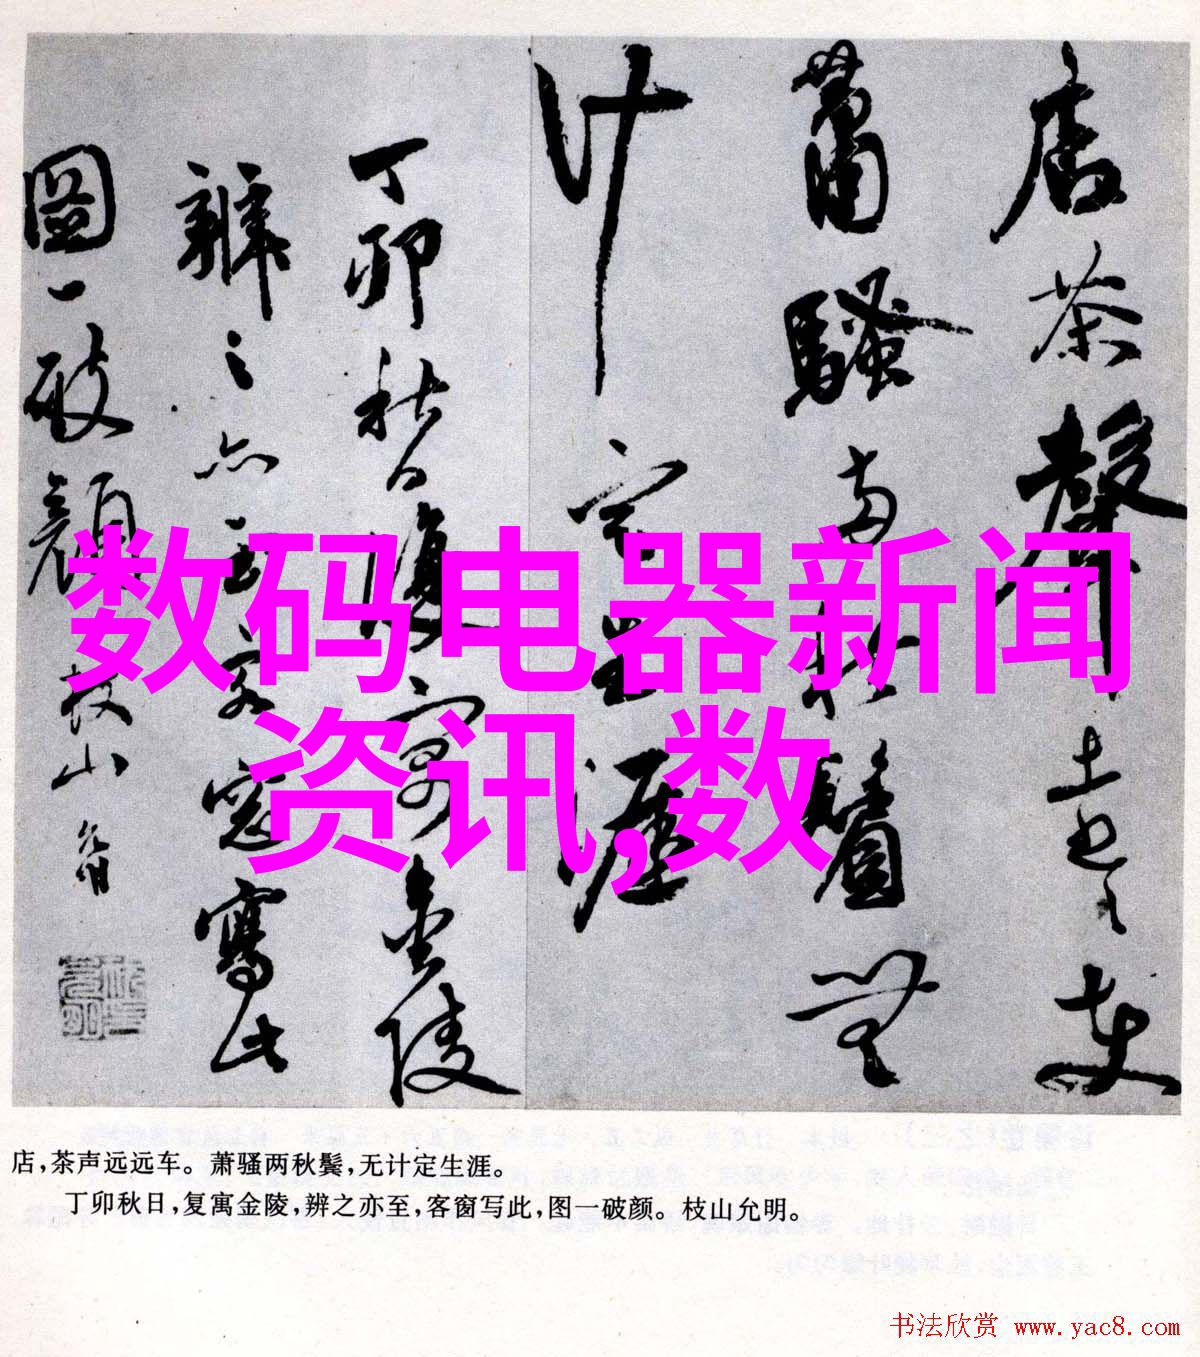 店茶聲遠遠車
蕭騷兩秋鬢無
计定生涯
丁卯秋日復寓金陵
辨之亦至客窓寫此
圖一破顔枝山允明
数码电器新闻
资讯,数
店,茶声远远车。萧骚两秋鬓,无计定生涯。
丁卯秋日,复寓金陵,辨之亦至,客窗写此,图一破颜。枝山允明。
书法欣赏 www.yac8.com